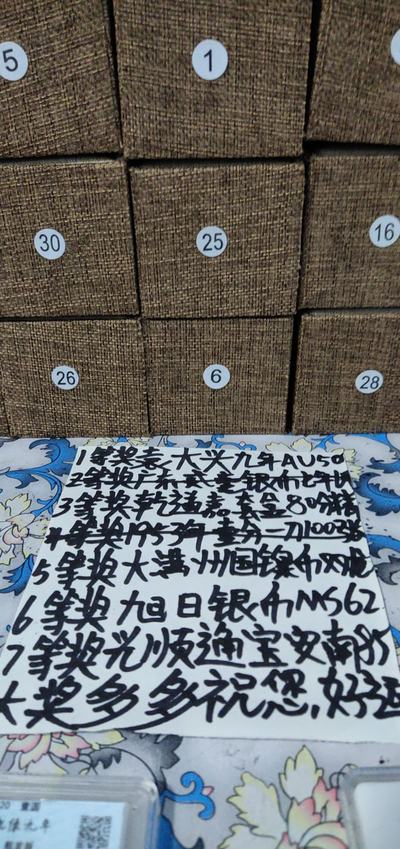 5
1
30
25
16
26
6
28
1等奖袁大头九年AU50
2等奖广东
3等奖乾通嘉套盒80
4等奖1953年壹分一刀100张
5等奖大满州国镍币双龙
6等奖旭日银币MS62
7等奖光顺通宝安南85
大奖多多祝您,好运
20 壹圆
九年